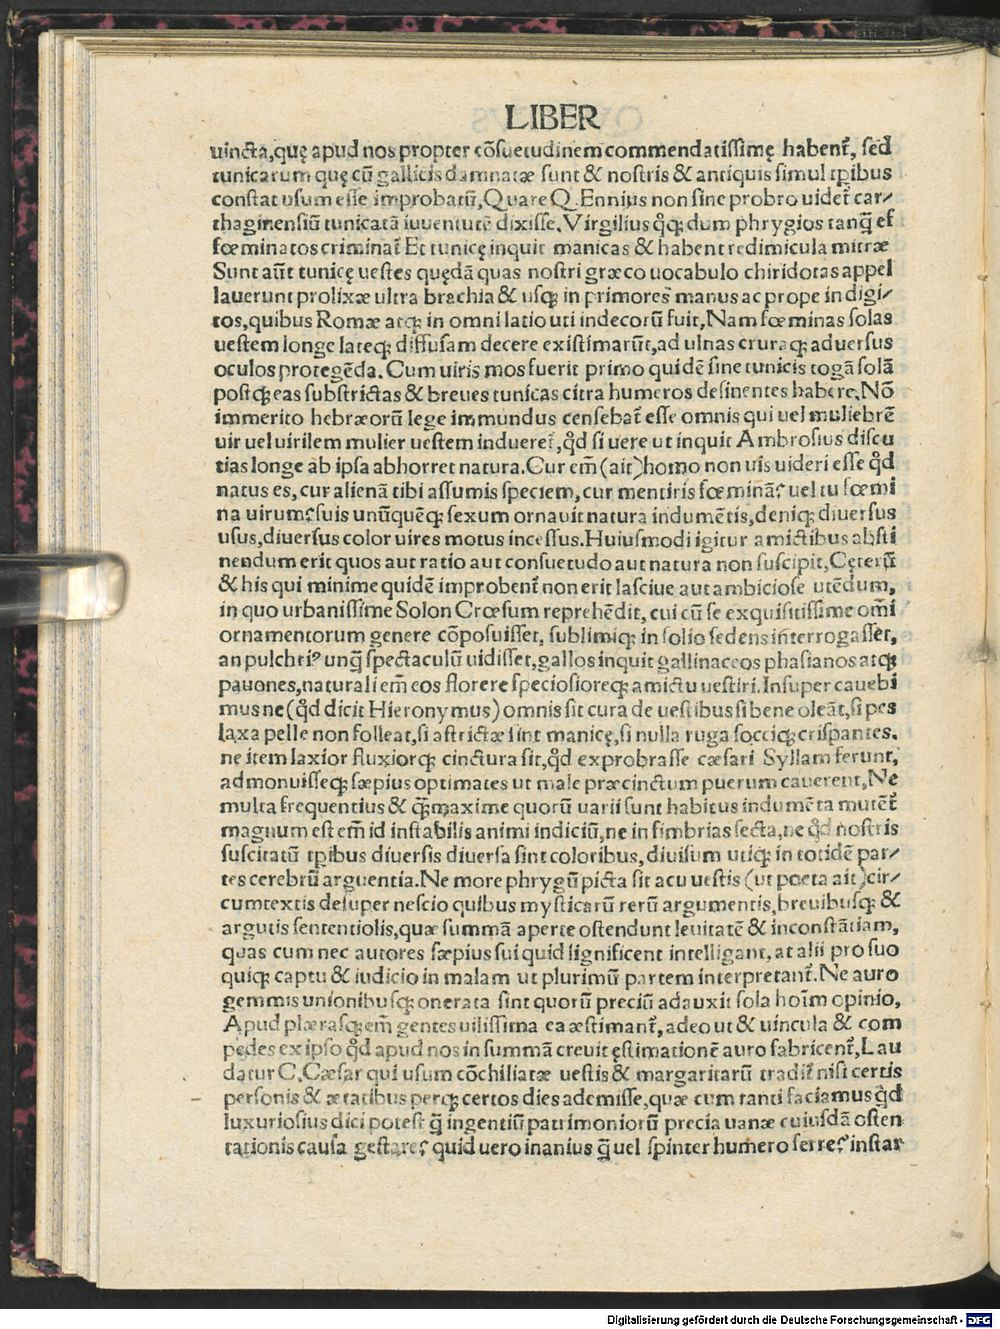 LIBER
uincta,quę apud nos propter cõsuetudinem commendatissimę habent᷑, sed
tunicarum quę cũ gallicis damnatæ sunt & nostris & antiquis simul tp̃ibus
constat usum esse improbatũ,Quare Q.Ennius non sine probro uidet᷑ car⸗
thaginensiũ tunicatã iuuentutẽ dixisse.Virgilius q̊q; dum phrygios tanq̃ ef
fœminatos criminat᷑ Et tunicę inquit manicas & habent redimicula mitræ
Sunt aũt tunicę uestes quędã quas nostri græco uocabulo chiridotas appel
lauerunt prolixæ ultra brachia & usq; in primores manus ac prope in digi⸗
tos,quibus Romæ atq; in omni latio uti indecorũ fuit,Nam fœminas solas
uestem longe lateq; diffusam decere existimarũt,ad ulnas cruraq; aduersus
oculos protegẽda.Cum uiris mos fuerit primo quidẽ sine tunicis togã solã
postq; eas substrictas & breues tunicas citra humeros desinentes habere.Nõ
immerito hebræorũ lege immundus censebat᷑ esse omnis qui uel muliebrẽ
uir uel uirilem mulier uestem indueret᷑,q̊d si uere ut inquit Ambrosius discu
tias longe ab ipsa abhorret natura.Cur em̃(ait)homo non uis uideri esse q̊d
natus es,cur alienã tibi assumis speciem,cur mentiris fœminã? uel tu fœmi
na uirum?suis unũquẽq; sexum ornauit natura indumẽtis,deniq; diuersus
usus,diuersus color uires motus incessus.Huiusmodi igitur amictibus absti
nendum erit quos aut ratio aut consuetudo aut natura non suscipit,Cęterũ
& his qui minime quidẽ improbent᷑ non erit lasciue aut ambiciose utẽdum,
in quo urbanissime Solon Crœsum reprehẽdit, cui cũ se exquisitissime om̃i
ornamentorum genere cõposuisset, sublimiq; in solio sedens interrogasset,
an pulchri⁹ unq̃ spectaculũ uidisset,gallos inquit gallinaceos phasianos atq;
pauones,naturali em̃ eos florere speciosioreq; amictu uestiri.Insuper cauebi
mus ne (q̊d dicit Hieronymus) omnis sit cura de uestibus si bene oleãt,si pes
laxa pelle non folleat,si astrictæ sint manicę,si nulla ruga socciq; crispantes.
ne item laxior fluxiorq; cinctura sit,q̊d exprobrasse cæsari Syllam ferunt,
admonuisseq; sæpius optimates ut male præcinctum puerum cauerent,Ne
multa frequentius & q̃maxime quorũ uarii sunt habitus indumẽta mutẽt᷑
magnum est em̃ id instabilis animi indiciũ,ne in fimbrias secta,ne q̊d nostris
suscitatũ tp̃ibus diuersis diuersa sint coloribus,diuisum utiq; in totidẽ par⸗
tes cerebrũ arguentia.Ne more phrygũ picta sit acu uestis (ut poeta ait)cir⸗
cumtextis desuper nescio quibus mysticarũ rerũ argumentis,breuibusq; &
argutis sententiolis,quæ summã aperte ostendunt leuitatẽ & inconstãtiam,
quas cum nec autores sæpius sui quid significent intelligant, at alii pro suo
quiq; captu & iudicio in malam ut plurimũ partem interpretant᷑.Ne auro
gemmis unionibusq; onerata sint quorũ preciũ adauxit sola hoĩm opinio,
Apud plærasq; em̃ gentes uilissima ea æstimant᷑,adeo ut & uincula & com
pedes ex ipso q̊d apud nos in summã creuit ęstimationẽ auro fabricent᷑,Lau
datur C.Cæsar qui usum cõchiliatæ uestis & margaritarũ tradit᷑ nisi certis
personis & ætatibus perq; certos dies ademisse,quæ cum tanti faciamus q̊d
luxuriosius dici potest q̃ ingentiũ patrimoniorũ precia uanæ cuiusdã osten
tationis causa gestare? quid uero inanius q̃ uel spinter humero ferre? instar
Digitalisierung gefördert durch die Deutsche Forschungsgemeinschaft - DFG